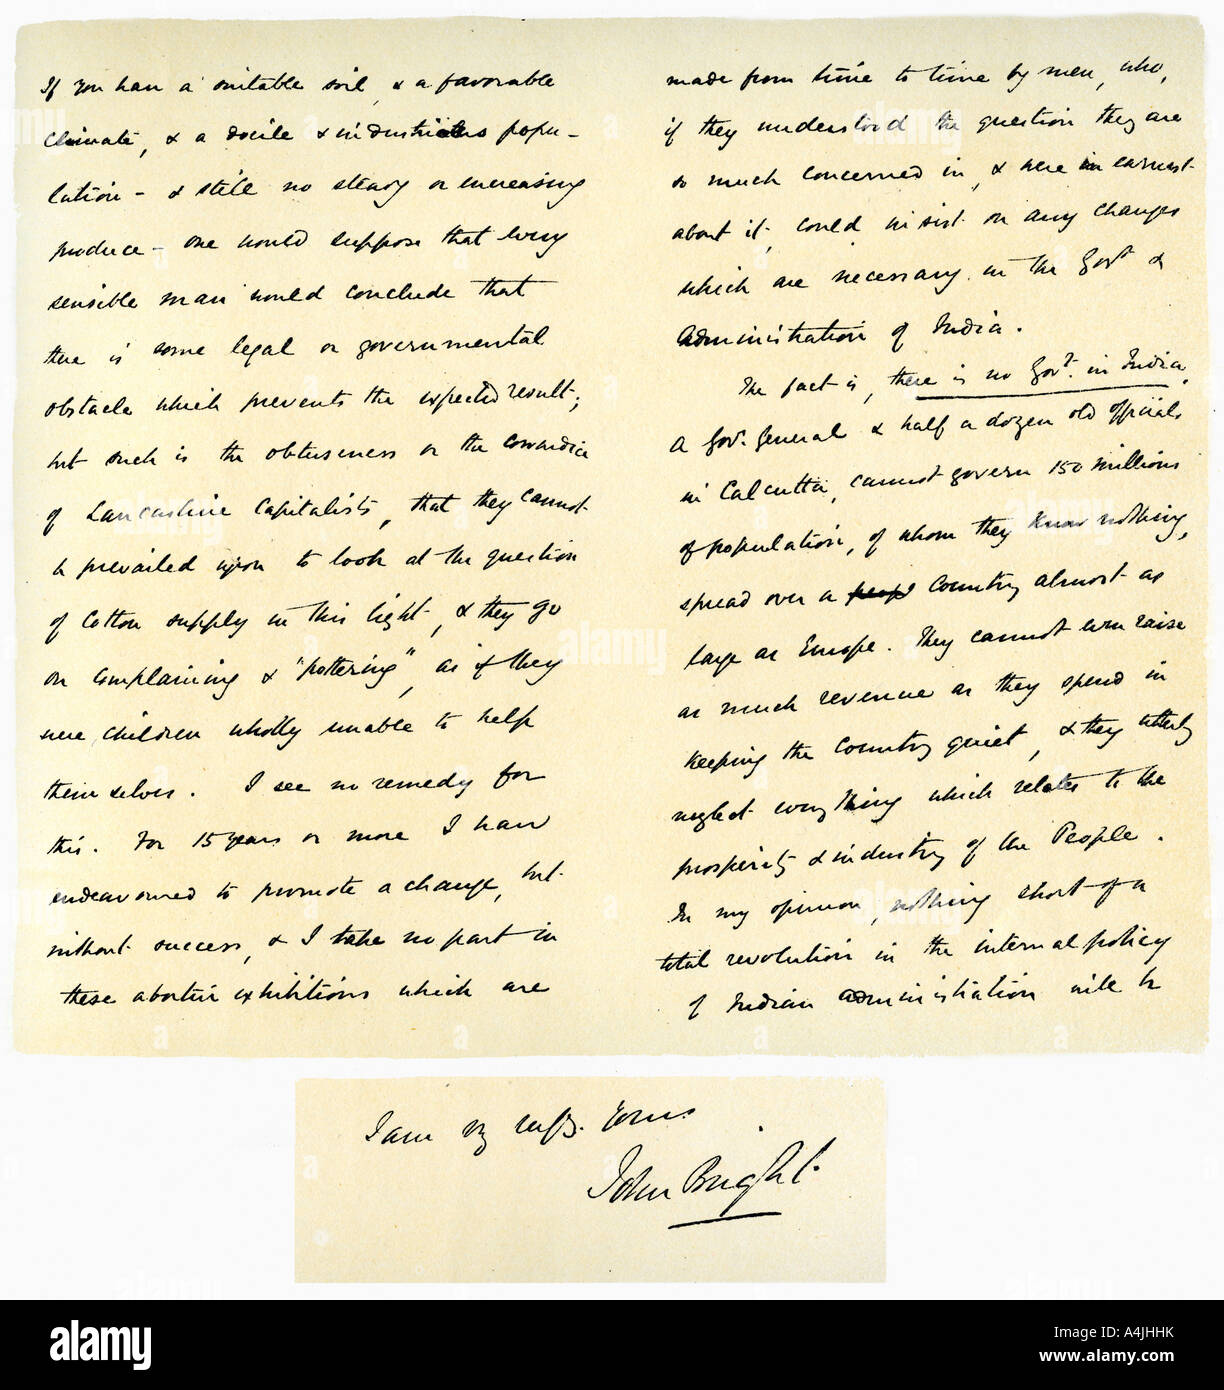 If you have a suitable soil, & a favorable
climate, & a docile & industrious popu-
lation - & still no steady or increasing
produce - one would suppose that every
sensible man would conclude that
there is some legal or governmental
obstacle which prevents the expected result;
but such is the obtuseness or the cowardice
of Lancashire Capitalists, that they cannot
be prevailed upon to look at the question
of Cotton supply in this light, & they go
on complaining & "pottering", as if they
were children wholly unable to help
themselves. I see no remedy for
this. For 15 years or more I have
endeavoured to promote a change, but
without success, & I take no part in
these abortive exhibitions which are
made from time to time by men, who,
if they understood the question they are
so much concerned in, & were in earnest
about it, could insist on any changes
which are necessary in the Govt &
Administration of India.
The fact is, there is no Govt. in India,
A Govr. General & half a dozen old officials
in Calcutta, cannot govern 150 millions
of population, of whom they know nothing,
spread over a peopl country almost as
large as Europe. They cannot even raise
as much revenue as they spend in
keeping the country quiet, & they utterly
neglect everything which relates to the
prosperity & industry of the People.
In my opinion, nothing short of a
total revolution in the internal policy
of Indian administration will be
I am vy respy. Yours
John Bright.
alamy
Image ID: A4JHHK
www.alamy.com